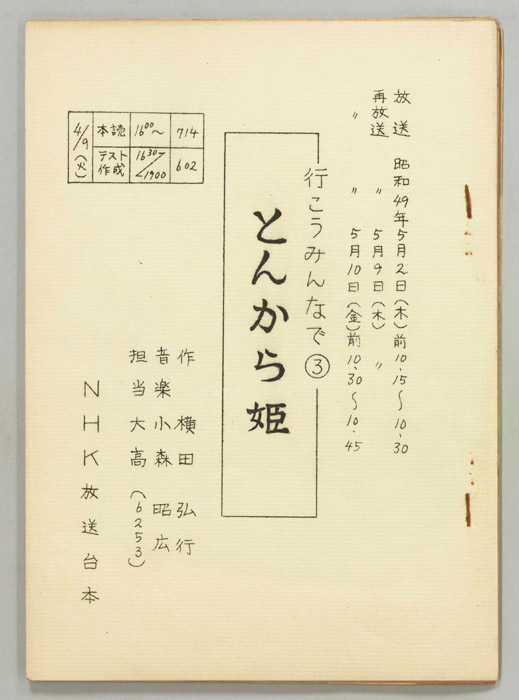 放送 昭和49年5月2日(木)前10.15~10.30
再放送 〃 5月9日(木) 〃
〃 〃 5月10日(金)前10.30~10.45
行こうみんなで③
とんから姫
作 横田弘行
音楽 小森昭広
担当 大高(6253)
NHK放送台本
4/9(火) 本読 16⁰⁰~ 714
テスト作成 16³⁰/1900 602